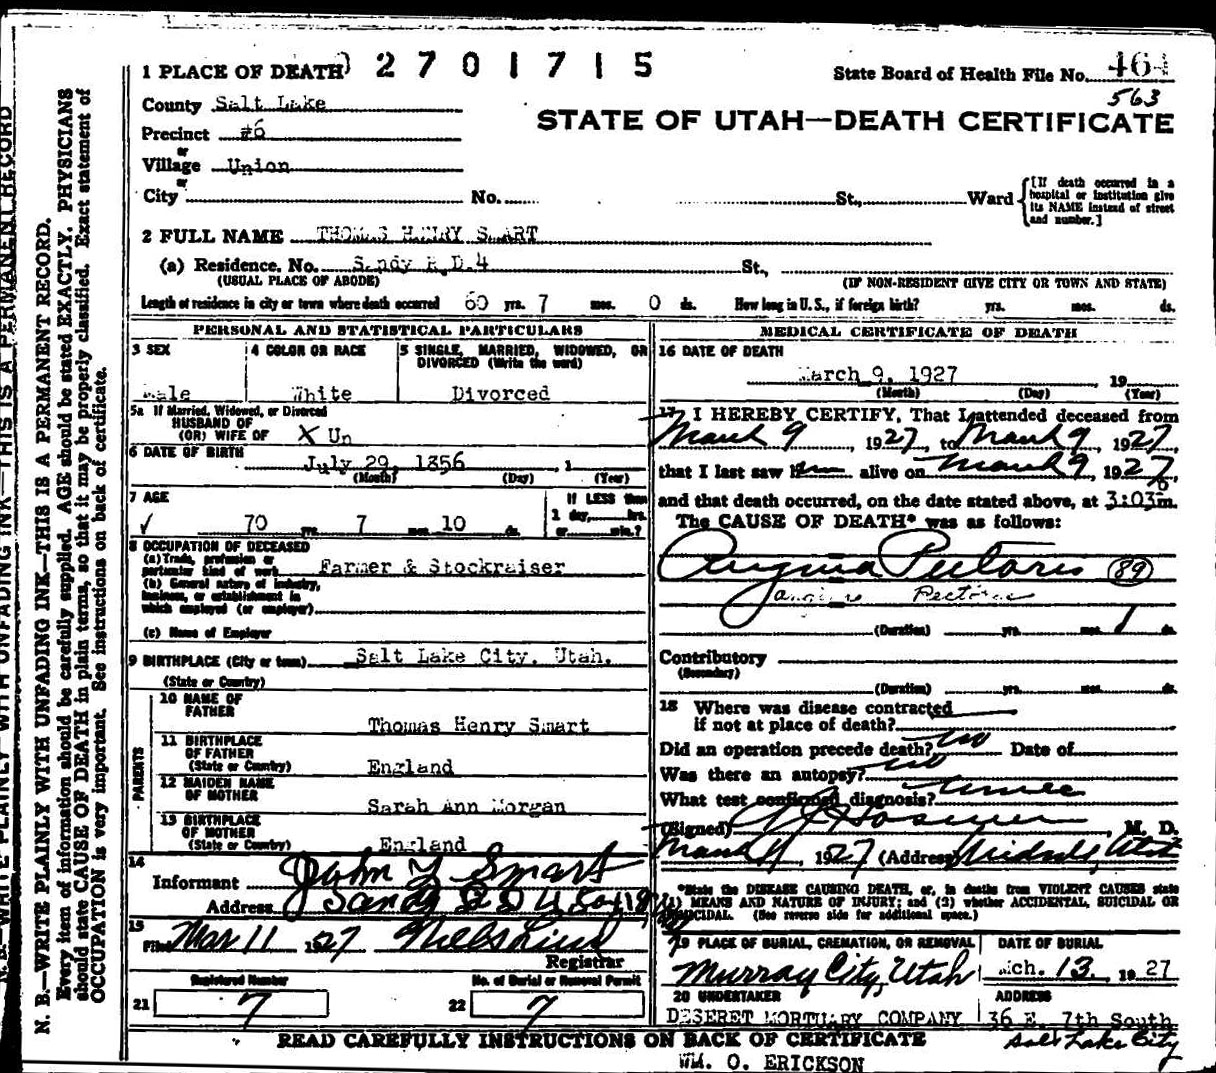 1 PLACE OF DEATH 2 7 0 1 7 1 5
State Board of Health File No. 464
563
County Salt Lake
STATE OF UTAH—DEATH CERTIFICATE
Precinct #6
or
Village Union
or
City No. St., Ward
[If death occurred in a hospital or institution give its NAME instead of street and number.]
2 FULL NAME THOMAS HENRY SMART
(a) Residence. No. Sandy R.D.4 St.,
(USUAL PLACE OF ABODE) (IF NON-RESIDENT GIVE CITY OR TOWN AND STATE)
Length of residence in city or town where death occurred 60 yrs. 7 mos. 0 ds. How long in U.S., if foreign birth? yrs. mos. ds.
PERSONAL AND STATISTICAL PARTICULARS
3 SEX 4 COLOR OR RACE 5 SINGLE, MARRIED, WIDOWED, OR DIVORCED (Write the word)
Male White Divorced
5a If Married, Widowed, or Divorced
HUSBAND OF
(OR) WIFE OF X Un
6 DATE OF BIRTH
July 29, 1856 , 1
(Month) (Day) (Year)
7 AGE
70 yrs. 7 mos. 10 ds.
If LESS than
1 day, hrs.
or min.?
8 OCCUPATION OF DECEASED
(a) Trade, profession or
particular kind of work Farmer & Stockraiser
(b) General nature of industry,
business, or establishment in
which employed (or employer)
(c) Name of Employer
9 BIRTHPLACE (City or town) Salt Lake City, Utah.
(State or Country)
PARENTS
10 NAME OF
FATHER Thomas Henry Smart
11 BIRTHPLACE
OF FATHER
(State or Country) England
12 MAIDEN NAME
OF MOTHER Sarah Ann Morgan
13 BIRTHPLACE
OF MOTHER
(State or Country) England
14
Informant John Y Smart
Address Sandy
15
Filed Mar 11 1927 Niels Lind
Registrar
Registered Number No. of Burial or Removal Permit
21 7 22 7
MEDICAL CERTIFICATE OF DEATH
16 DATE OF DEATH
March 9, 1927 19
(Month) (Day) (Year)
17 I HEREBY CERTIFY, That I attended deceased from
March 9, 1927, to March 9, 1927,
that I last saw him alive on March 9, 1927,
and that death occurred, on the date stated above, at 3:03 m.
The CAUSE OF DEATH* was as follows:
Angina Pectoris 89
Pectoris
(Duration) yrs. mos. 1 ds.
Contributory
(Secondary)
(Duration) yrs. mos. ds.
18 Where was disease contracted
if not at place of death?
Did an operation precede death? no Date of
Was there an autopsy? no
What test confirmed diagnosis?
(Signed) , M. D.
March 11, 1927 (Address Midvale, Utah
*State the DISEASE CAUSING DEATH, or, in deaths from VIOLENT CAUSES state
(1) MEANS AND NATURE OF INJURY; and (2) whether ACCIDENTAL, SUICIDAL OR
HOMICIDAL. (See reverse side for additional space.)
19 PLACE OF BURIAL, CREMATION, OR REMOVAL DATE OF BURIAL
Murray City, Utah Mch. 13. 1927
20 UNDERTAKER ADDRESS
DESERET MORTUARY COMPANY 36 E. 7th South
Salt Lake City
READ CAREFULLY INSTRUCTIONS ON BACK OF CERTIFICATE
WM. O. ERICKSON
N. B.—WRITE PLAINLY WITH UNFADING INK—THIS IS A PERMANENT RECORD.
Every item of information should be carefully supplied. AGE should be stated EXACTLY. PHYSICIANS
should state CAUSE OF DEATH in plain terms, so that it may be properly classified. Exact statement of
OCCUPATION is very important. See instructions on back of certificate.
N. B.—WRITE PLAINLY WITH UNFADING INK—THIS IS A PERMANENT RECORD